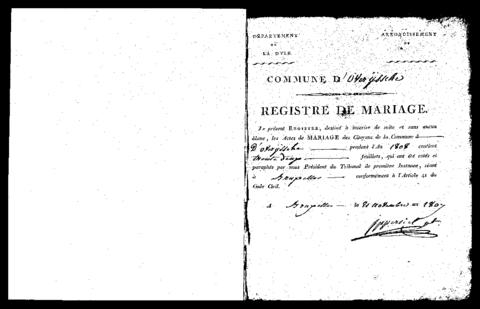 DÉPARTEMENT
DE
LA DYLE.
ARRONDISSEMENT
DE
COMMUNE D'Overijssche
REGISTRE DE MARIAGE.
Le présent REGISTRE, destiné à inscrire de suite et sans aucun
blanc, les Actes de MARIAGE des Citoyens de la Commune d
D'overijssche pendant l'An 1808 contient
trente deux feuillets, qui ont été cotés et
paraphés par nous Président du Tribunal de première Instance, séant
à Bruxelles conformément à l'Article 41 du
Code Civil.
A Bruxelles le 21 novembre 1807